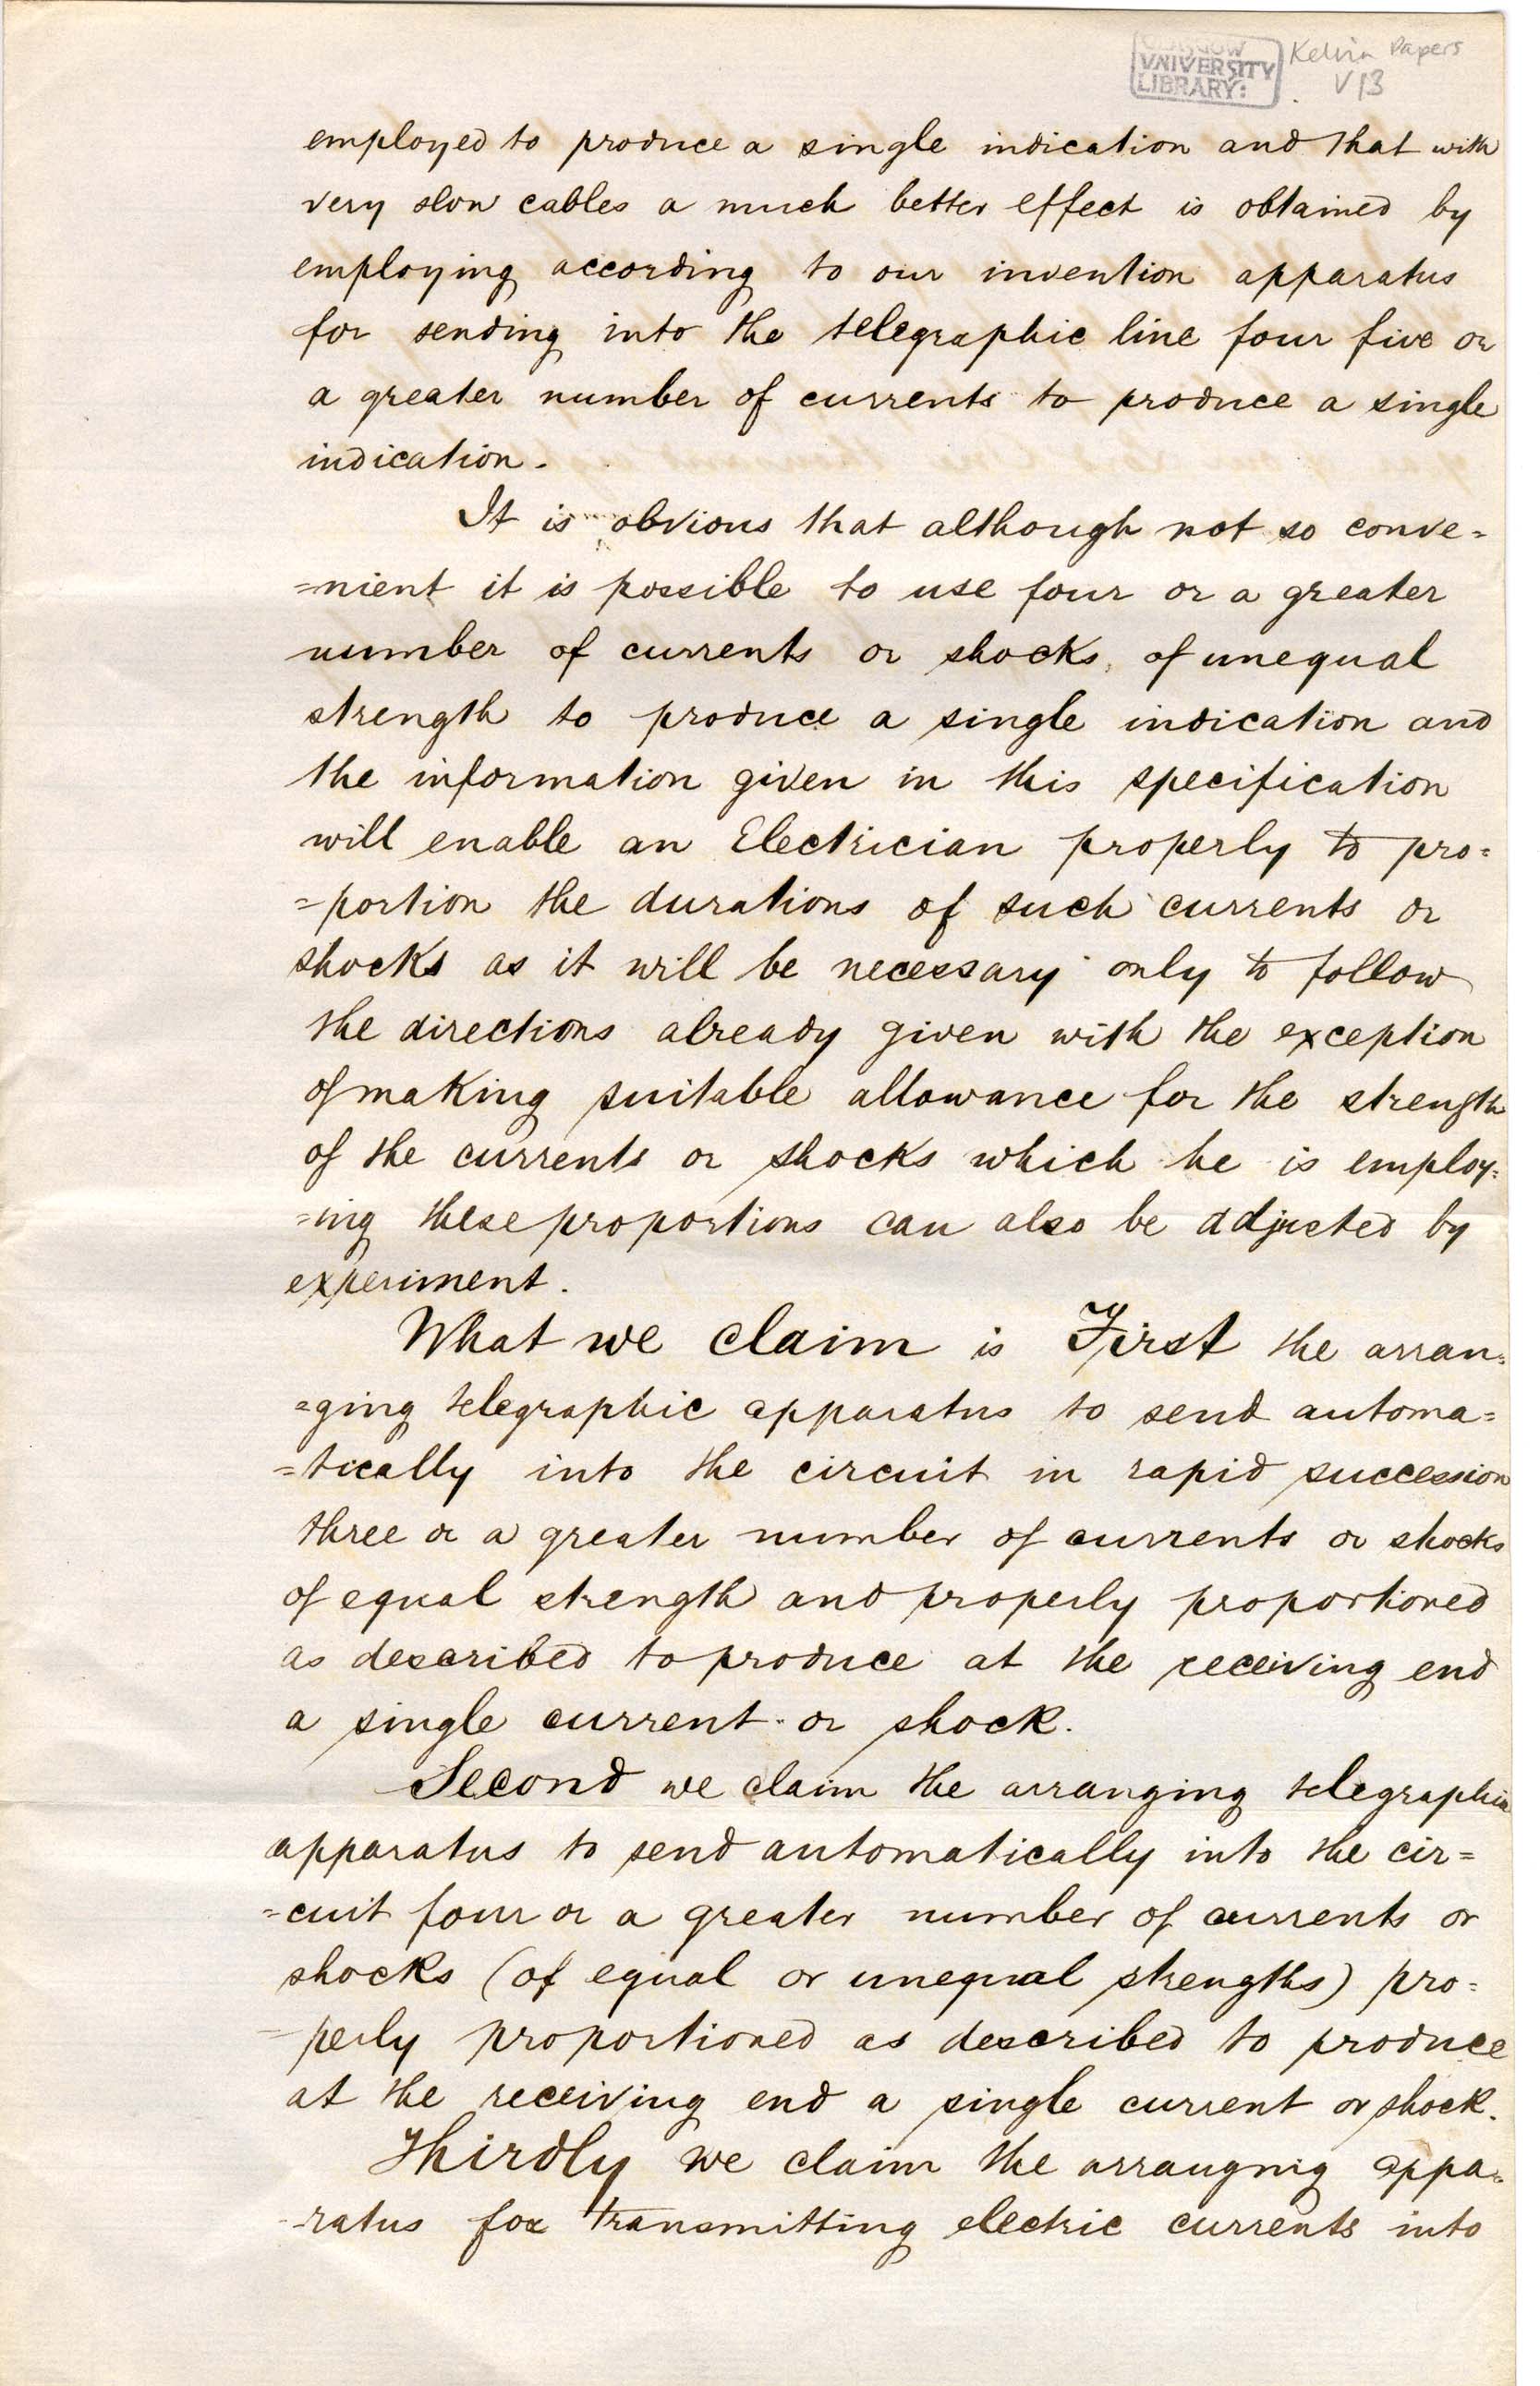 GLASGOW
UNIVERSITY
LIBRARY:
Kelvin Papers
V13
employed to produce a single indication and that with
very slow cables a much better effect is obtained by
employing according to our invention apparatus
for sending into the telegraphic line four five or
a greater number of currents to produce a single
indication.
It is obvious that although not so conve=
=nient it is possible to use four or a greater
number of currents or shocks, of unequal
strength to produce a single indication and
the information given in this specification
will enable an Electrician properly to pro=
=portion the durations of such currents or
shocks as it will be necessary only to follow
the directions already given with the exception
of making suitable allowance for the strength
of the currents or shocks which he is employ=
=ing these proportions can also be adjusted by
experiment.
What we claim is First the arran=
=ging telegraphic apparatus to send automa=
=tically into the circuit in rapid succession
three or a greater number of currents or shocks
of equal strength and properly proportioned
as described to produce at the receiving end
a single current or shock.
Second we claim the arranging telegraphic
apparatus to send automatically into the cir=
=cuit four or a greater number of currents or
shocks (of equal or unequal strengths) pro=
=perly proportioned as described to produce
at the receiving end a single current or shock.
Thirdly we claim the arranging appa=
=ratus for transmitting electric currents into